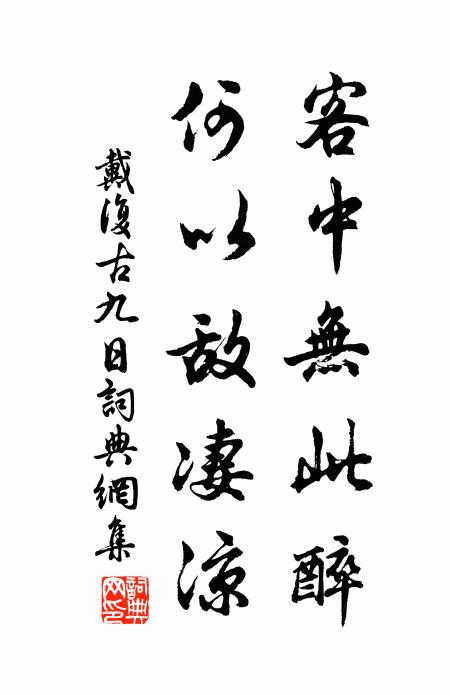 客中無此醉
何以敵淒涼
戴復古九日詞典網集
詞典網印